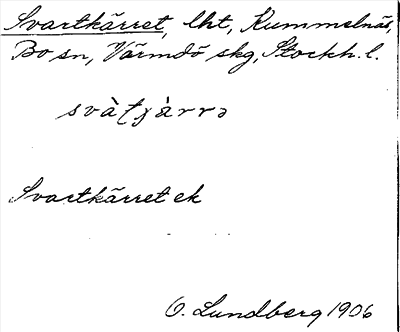 Svartkärret, lht, Kummelnäs,
Bo sn, Värmdö skg, Stockh. l.
svàʈɟàrrə
Svartkärret ek
O. Lundberg 1906